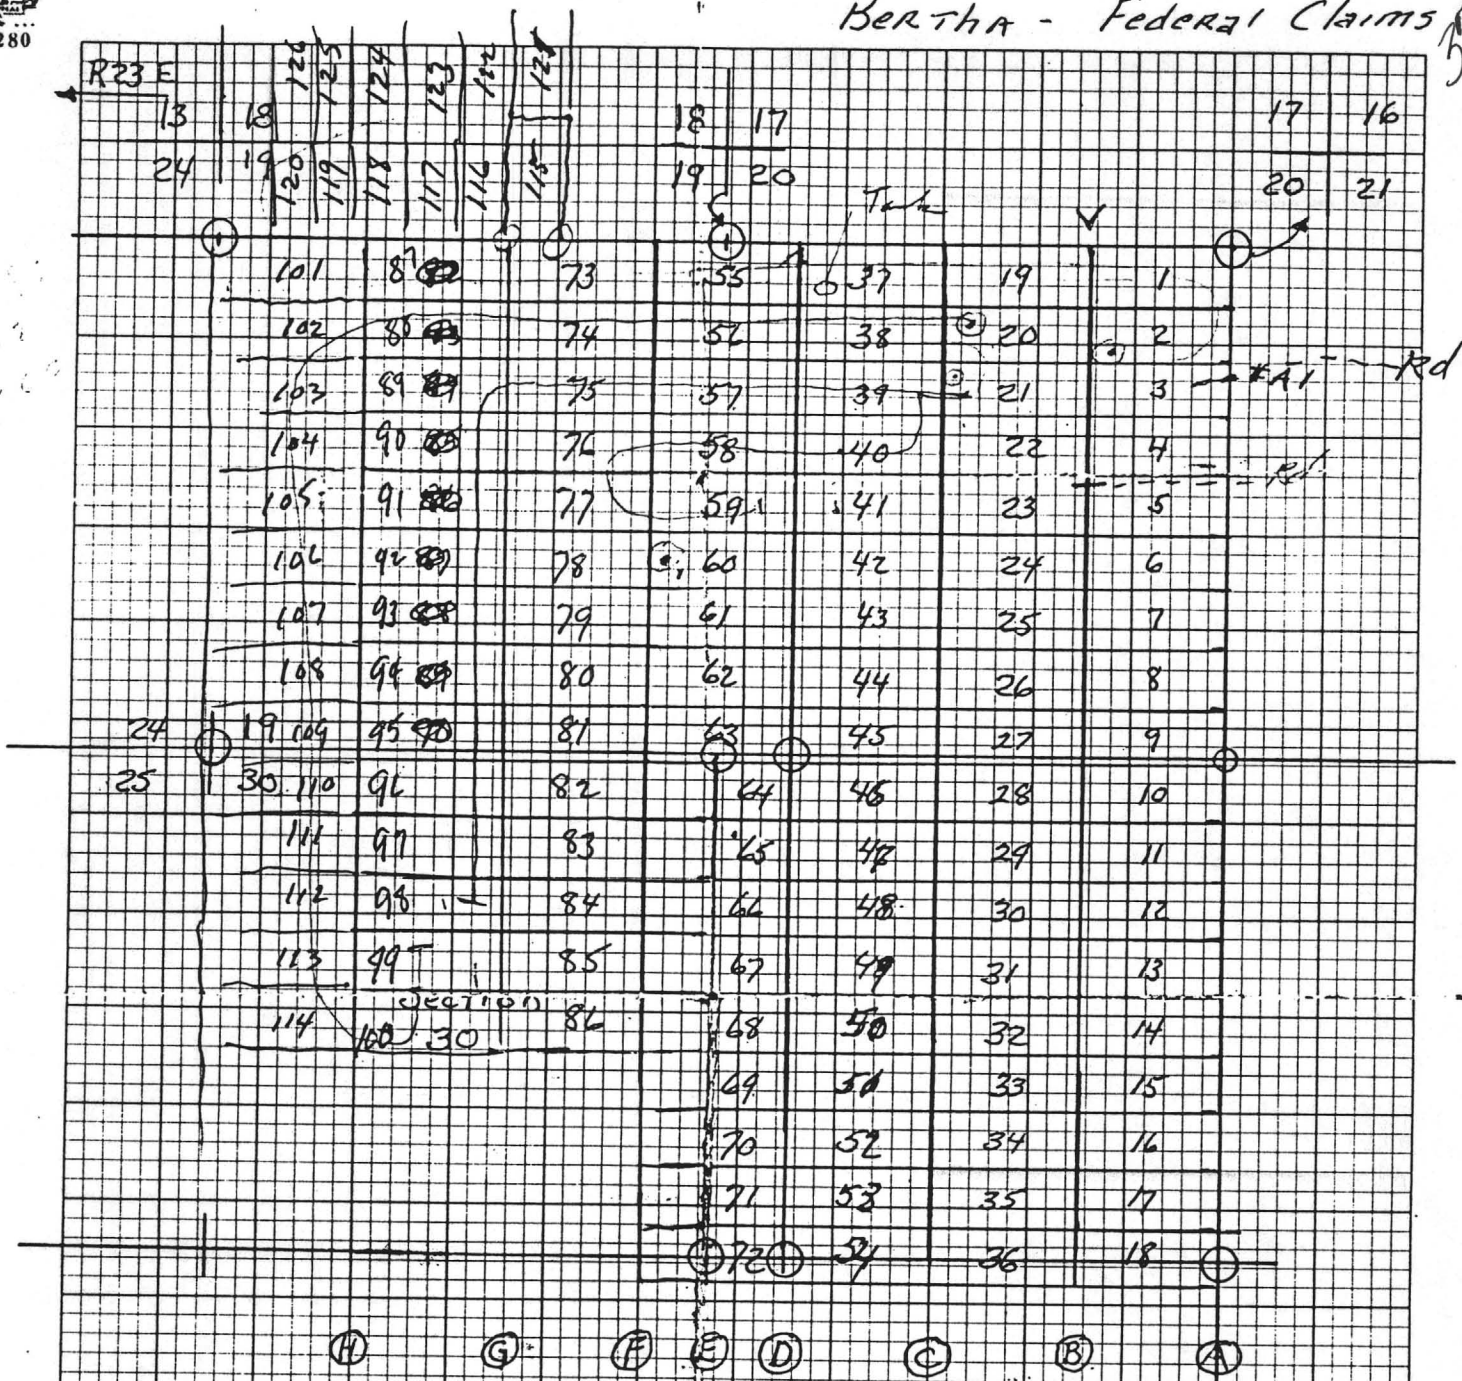 280
BERTHA - Federal Claims
R23 E
126 125 124 123 122 121
13 18 18 17 17 16
24 19 120 119 118 117 116 115 19 20 20 21
Tank
101 87 73 55 37 19 1
102 88 74 56 38 20 2
103 89 75 57 39 21 3 #A1 Rd
104 90 76 58 40 22 4
Rd.
105 91 77 59 41 23 5
106 92 78 60 42 24 6
107 93 79 61 43 25 7
108 94 80 62 44 26 8
24 19 109 95 81 63 45 27 9
25 30 110 96 82 64 46 28 10
111 97 83 65 47 29 11
112 98 84 66 48 30 12
113 99 85 67 49 31 13
Section
114 100 30 86 68 50 32 14
69 51 33 15
70 52 34 16
71 53 35 17
72 54 36 18
H G F E D C B A